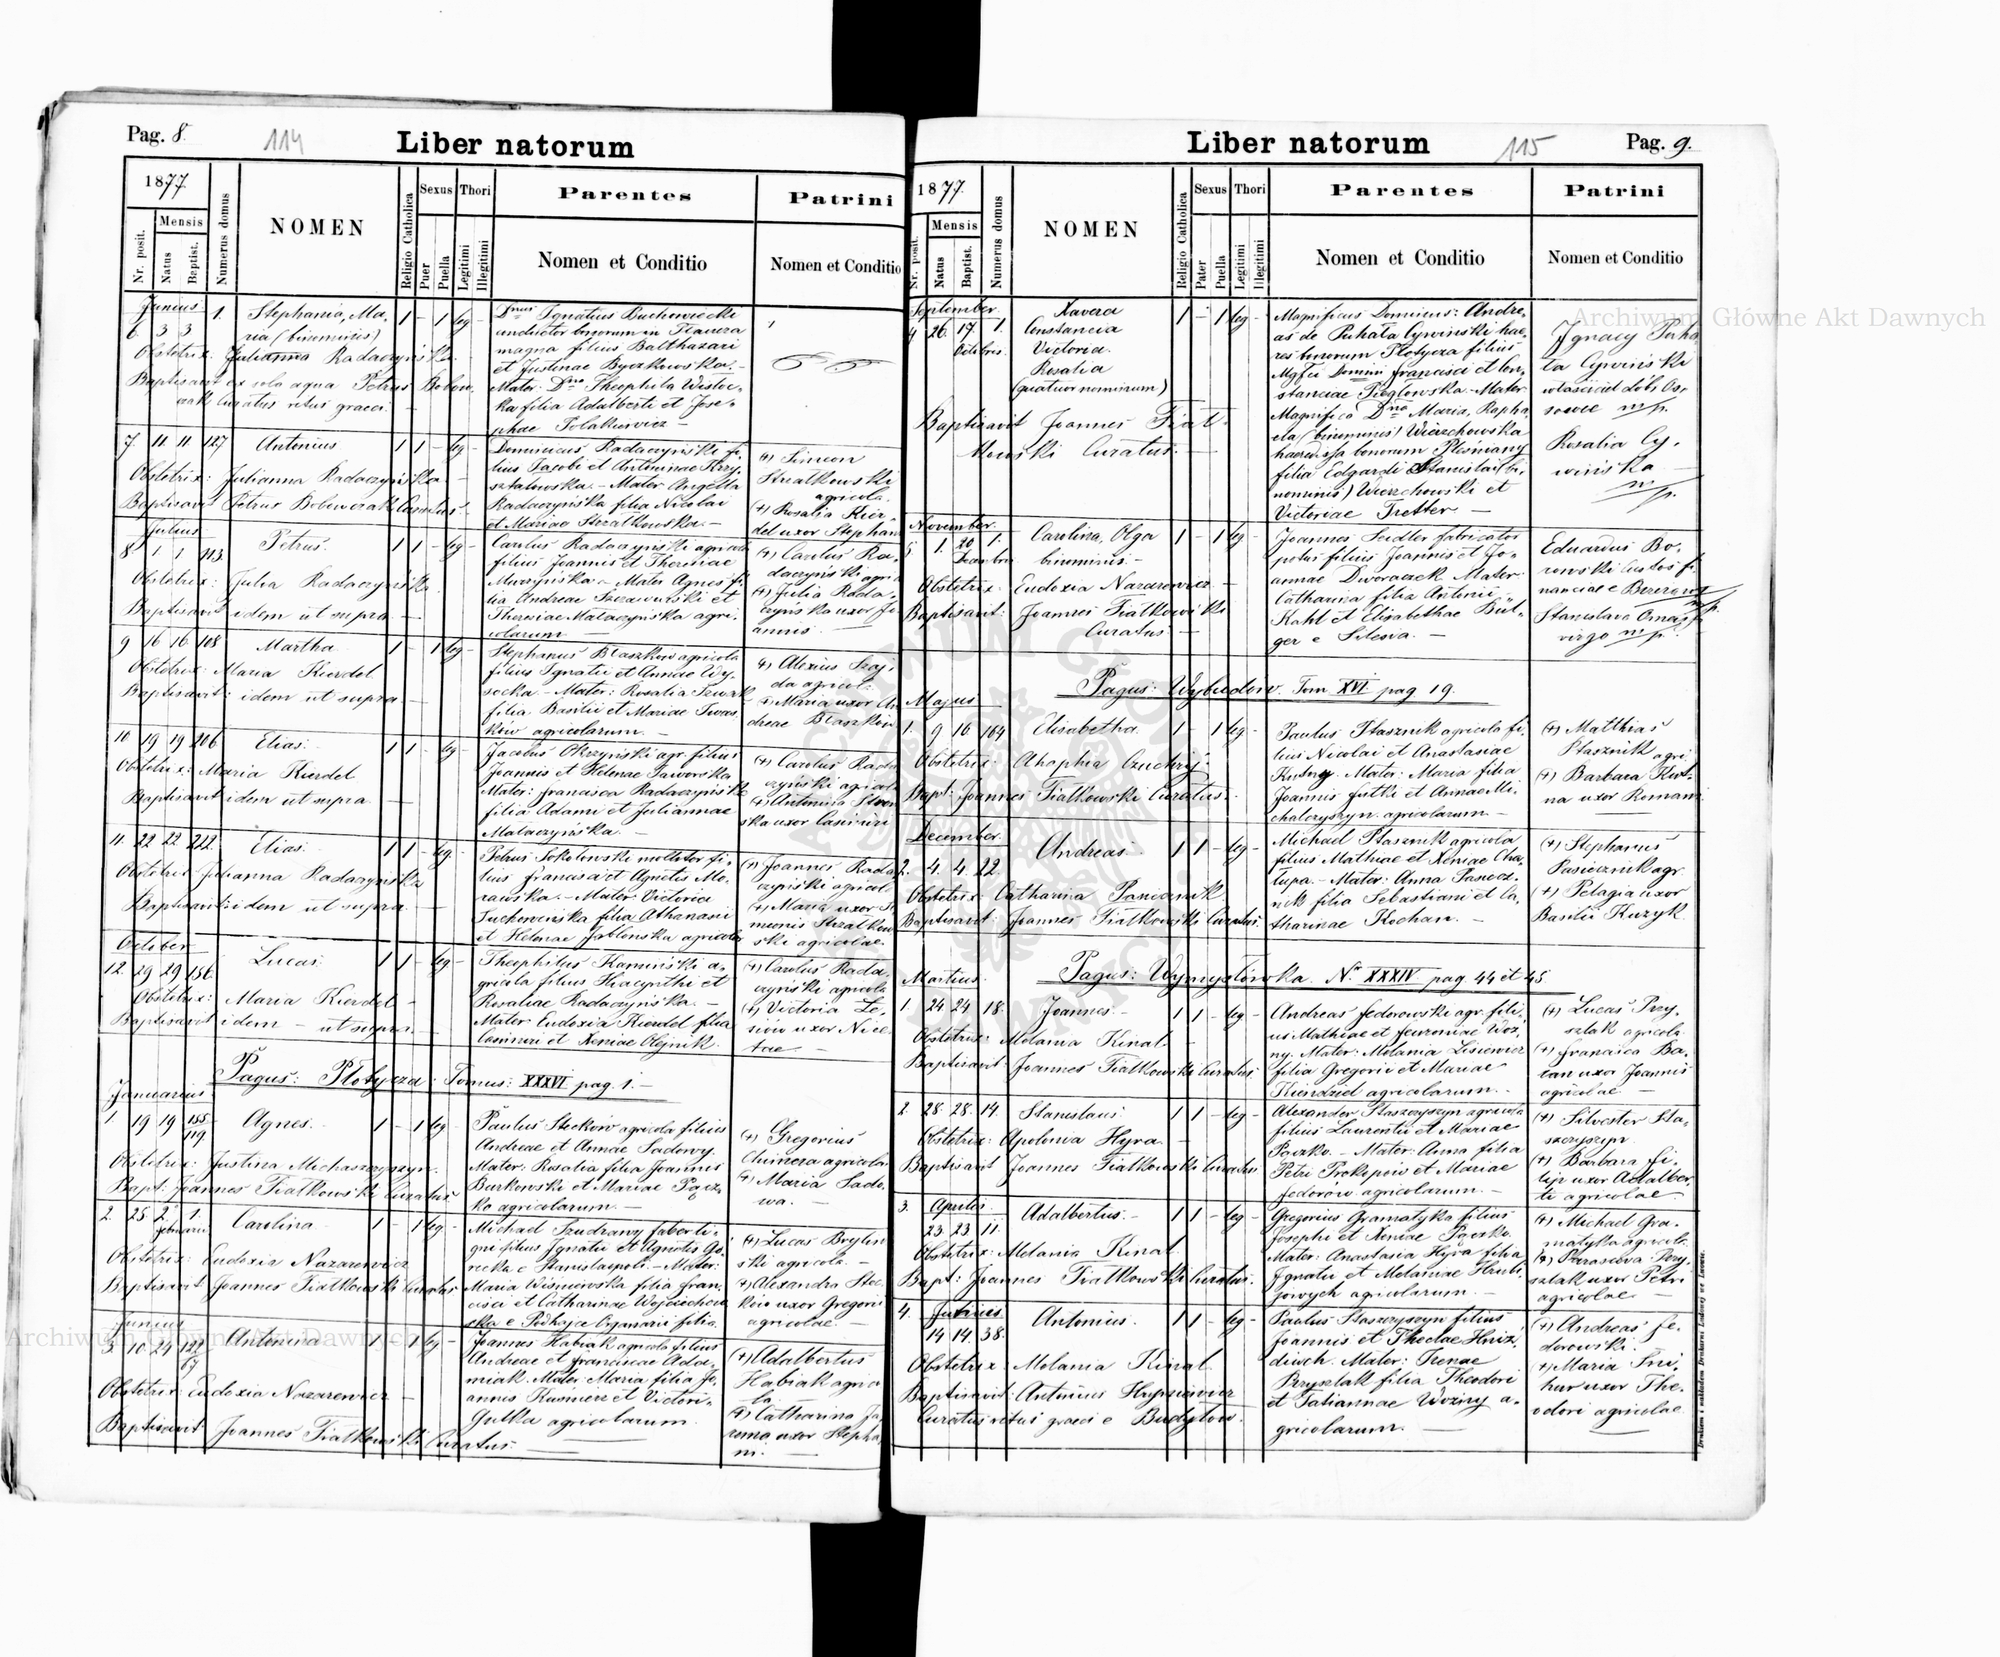 Pag. 8.
114
Liber natorum
1877.
Nr. posit.
Mensis
Natus
Baptist.
Numerus domus
NOMEN
Religio Catholica
Sexus
Puer
Puella
Thori
Legitimi
Illegitimi
Parentes
Nomen et Conditio
Patrini
Nomen et Conditio
Junius
6 3 3 1. Stephania, Ma,
ria (binominis)
1 - 1 leg -
Obstetrix: Julianna Radaczyńska
Baptisavit ex sola aqua Petrus
Curatus ritus graeci. —
Dnus Ignatius Buchowiecki
bonorum in
magna filius Balthazari
et Justinae Byczkowska. -
Mater: Dna Theophila
ka filia Adalberti et Jose,
phae Polakiewicz —
7. 11. 11 127 Antonius 1 1 - leg -
Obstetrix: Julianna Radaczyńska —
Baptisavit Petrus Curatus. -
Dominicus Radaczyński fi,
lius Jacobi et Antoninae Krzy,
sztalowska. - Mater Angella
Radaczyńska filia Nicolai
et Mariae Strzałkowska. —
(+) Simeon
Strzałkowski
agricola.
(+) Rosalia Kier,
del uxor Stephani
Julius
8 1 1 113. Petrus. 1 1 - leg -
Obstetrix: Julia Radaczyńska.
Baptisavit idem ut supra. —
Carolus Radaczyński agricola
filius Joannis et Theresiae
Murzyńska - Mater Agnes fi,
lia Andreae Szczawurski et
Theresiae Malaczyńska agri,
colarum —
(+) Carolus Ra,
daczyński agri
(+) Julia Rada,
czyńska uxor Jo
annis. —
9 16 16. 108 Martha 1 - 1 leg -
Obstetrix: Maria Kierdel
Baptisavit: idem ut supra —
Stephanus Blaszków agricola
filius Ignatii et Annae Wy,
socka. - Mater: Rosalia
filia Basilii et Mariae Iwas,
ków agricolarum. —
(+) Alexius Szaj,
da agricol.
(+) Maria uxor An
dreae Blaszków
10 19 19 206 Elias. 1 1 - leg
Obstetrix: Maria Kierdel
Baptisavit idem ut supra —
Jacobus Okrzyński agr. filius
Joannis et Helenae Jaworska
Mater: Francisca Radaczyńska
filia Adami et Juliannae
Malaczyńska. —
(+) Carolus Rada
czyński agricola
(+) Antonina
ska uxor Casimiri
11. 22 22 212. Elias. 1 1 - leg. -
Obstetrix Julianna Radaczyńska
Baptisavit: idem ut supra —
Petrus Sokolowski molitor fi,
lius Francisci et Agnetis Mo,
rawska. - Mater Victoria
Suchowerska filia Athanasii
et Helenae Jablonska agricolar.
(+) Joannes Rada
czyński agricol
(+) Maria uxor Si
meonis Strzałkow
ski agricolae.
October
12. 29 29 186. Lucas. 1 1 - leg -
Obstetrix: Maria Kierdel -
Baptisavit idem - ut supra. —
Theophilus Kamiński a,
gricola filius Hiacynthi et
Rosaliae Radaczyńska. —
Mater Eudoxia Kierdel filia
Casimiri et Xeniae Olejnik.
(+) Carolus Rada,
czyński agricola
(+) Victoria Le,
siów uxor Nice
tae. —
Pagus: Płotycza. Tomus: XXXVI pag 1. —
Januarius.
1. 19 19 155/119. Agnes. 1 - 1 leg -
Obstetrix: Justina Michaszczyszyn.
Bapt: Joannes Fiałkowski Curatus.
Paulus Steckow agricola filius
Andreae et Annae Sadowy.
Mater: Rosalia filia Joannis
Burkowski et Mariae Pącz,
ko agricolarum. —
(+) Gregorius
Chimera agricola
(+) Maria Sado,
wa. —
2. 25. 2. 1. Februarii. Carolina 1 - 1 leg -
Obstetrix: Eudoxia Nazarewicz
Baptisavit Joannes Fiałkowski Curatus
Michael Szudrawy faber li,
gni filius Ignatii et Agnetis Go,
recka e Stanislaopoli. - Mater:
Maria Wiśniewska filia Fran,
cisci et Catharinae Wojciechow
ska e Podhajce filia.
(+) Lucas Bryliń
ski agricola. —
(+) Alexandra Stec
ków uxor Gregorii
agricolae. —
Junius
3. 10. 24 122/67 Antonina 1 - 1 leg -
Obstetrix: Eudoxia Nazarewicz —
Baptisavit Joannes Fiałkowski Curatus. —
Joannes Habiak agricola filius
Andreae et Franciscae Ada,
miak. Mater Maria filia Jo,
annes Kusnierz et Victori-
Gulka agricolarum.
(+) Adalbertus
Habiak agrico
la
(+) Catharina Ja
roma uxor Stepha,
ni. —
Liber natorum
115
Pag. 9.
1877.
Nr. posit.
Mensis
Natus
Baptist.
Numerus domus
NOMEN
Religio Catholica
Sexus
Pater
Puella
Thori
Legitimi
Illegitimi
Parentes
Nomen et Conditio
Patrini
Nomen et Conditio
September
4 26. 17. Octobris. 1. Xavera
Constancia
Victoria.
Rosalia
(quatuor nominum)
1 - 1 leg -
Baptisavit Joannes Fiał-
kowski Curatus. -
Magnificus Dominus: Andre,
as de Puhała Cywiński hae,
res bonorum Płotycza filius
Mgfci Domini Francisci et Con,
stanciae Piegłowska - Mater
Magnifica Dna Maria, Rapha
ela (binominis) Wierzchowska
haeredissa bonorum Pleśniany
filia Edgardi Stanislai (bi,
nominis) Wierzchowski et
Victoriae Tretter —
Ignacy Puha
ła Cywiński
właściciel dóbr Os,
sowce mp.
Rosalia Cy,
wińska —
mp.
November.
5. 1. 20 Decembris 1. Carolina, Olga
binominis. -
1 - 1 leg
Obstetrix: Eudoxia Nazarewicz. —
Baptisavit: Joannes Fiałkowski
Curatus. —
Joannes Seidler fabricator
potus filius Joannis et Jo,
annae Dworaczek Mater:
Catharina filia Antonii
Kahl et Elisabethae Bül,
ger e Silesia. —
Eduardus Bo,
rowski custos fi,
nanciae e
mp.
Stanislava
virgo mp. -
Pagus: Wybudów. Tom XVI pag 19.
Majus
1. 9 16 164 Elisabetha. 1 - 1 leg -
Obstetrix: Ahaphia Czuchrij. -
Bapt: Joannes Fiałkowski Curatus. -
Paulus Ptasznik agricola fi,
lius Nicolai et Anastasiae
Kutny. Mater: Maria filia
Joannis Futki et Annae Mi,
chalczyszyn agricolarum. —
(+) Matthias
Ptasznik agri.
(+) Barbara Kut,
na uxor Romani.
December
2. 4. 4. 22. Andreas. 1 1 - leg -
Obstetrix: Catharina Pasicznik
Baptisavit: Joannes Fiałkowski Curatus.
Michael Ptasznik agricola
filius Mathiae et Xeniae Cha,
łupa. - Mater: Anna Pasiecz,
nik filia Sebastiani et Ca,
tharinae Kochan. —
(+) Stephanus
Pasiecznik agr.
(+) Pelagia uxor
Basilii Kuzyk
Pagus: Wymysłówka. Nr XXXIV pag 44 et 45.
Martius.
1. 24. 24 18. Joannes. - 1 1 - leg -
Obstetrix: Melania Kinal.
Baptisavit: Joannes Fiałkowski Curatus
Andreas Fedorowski agr. fili,
us Mathiae et Fewroniae Woź,
ny. Mater: Melania Lisiewicz
filia Gregorii et Mariae
Kiendzid agricolarum. -
(+) Lucas Przy,
szlak agricola
(+) Francisca Ba,
ran uxor Joannis
agricolae —
2. 28. 28. 14. Stanislaus. 1 1 - leg -
Obstetrix: Apolonia Hyra. —
Baptisavit Joannes Fiałkowski Curatus
Alexander Staszczyszyn agricola
filius Laurentii et Mariae
Paczko. - Mater: Anna filia
Petri Prokopów et Mariae
Fedorów agricolarum. —
(+) Silvester Sta,
szczyszyn.
(+) Barbara Fi,
lip uxor Adalber,
ti agricolae —
Aprilis
3. 23. 23 11. Adalbertus. - 1 1 - leg -
Obstetrix: Melania Kinal
Bapt: Joannes Fiałkowski Curatus.
Gregorius Gramatyka filius
Josephi et Xeniae Paczko.
Mater: Anastasia Hyra filia
Ignatii et Melaniae Hrubi,
jowych agricolarum. —
(+) Michael Gra,
matyka agricola.
(+) Parasceva Przy,
szlak uxor Petri
agricolae. —
Junius
4. 14. 14. 38. Antonius. 1 1 - leg -
Obstetrix: Melania Kinal
Baptisavit: Antonius
Curatus ritus graeci e Budyłów.
Paulus Staszczyszyn filius
Joannis et Theclae Hniz,
diuch. Mater: Irenae
Przyszlak filia Theodori
et Tatiannae Woźny a,
gricolarum. —
(+) Andreas Fe,
dorowski.
(+) Maria Sni,
hur uxor The,
odori agricolae
Drukiem i nakładem Drukarni Ludowej we Lwowie.
Archiwum Główne Akt Dawnych
Archiwum Główne Akt Dawnych